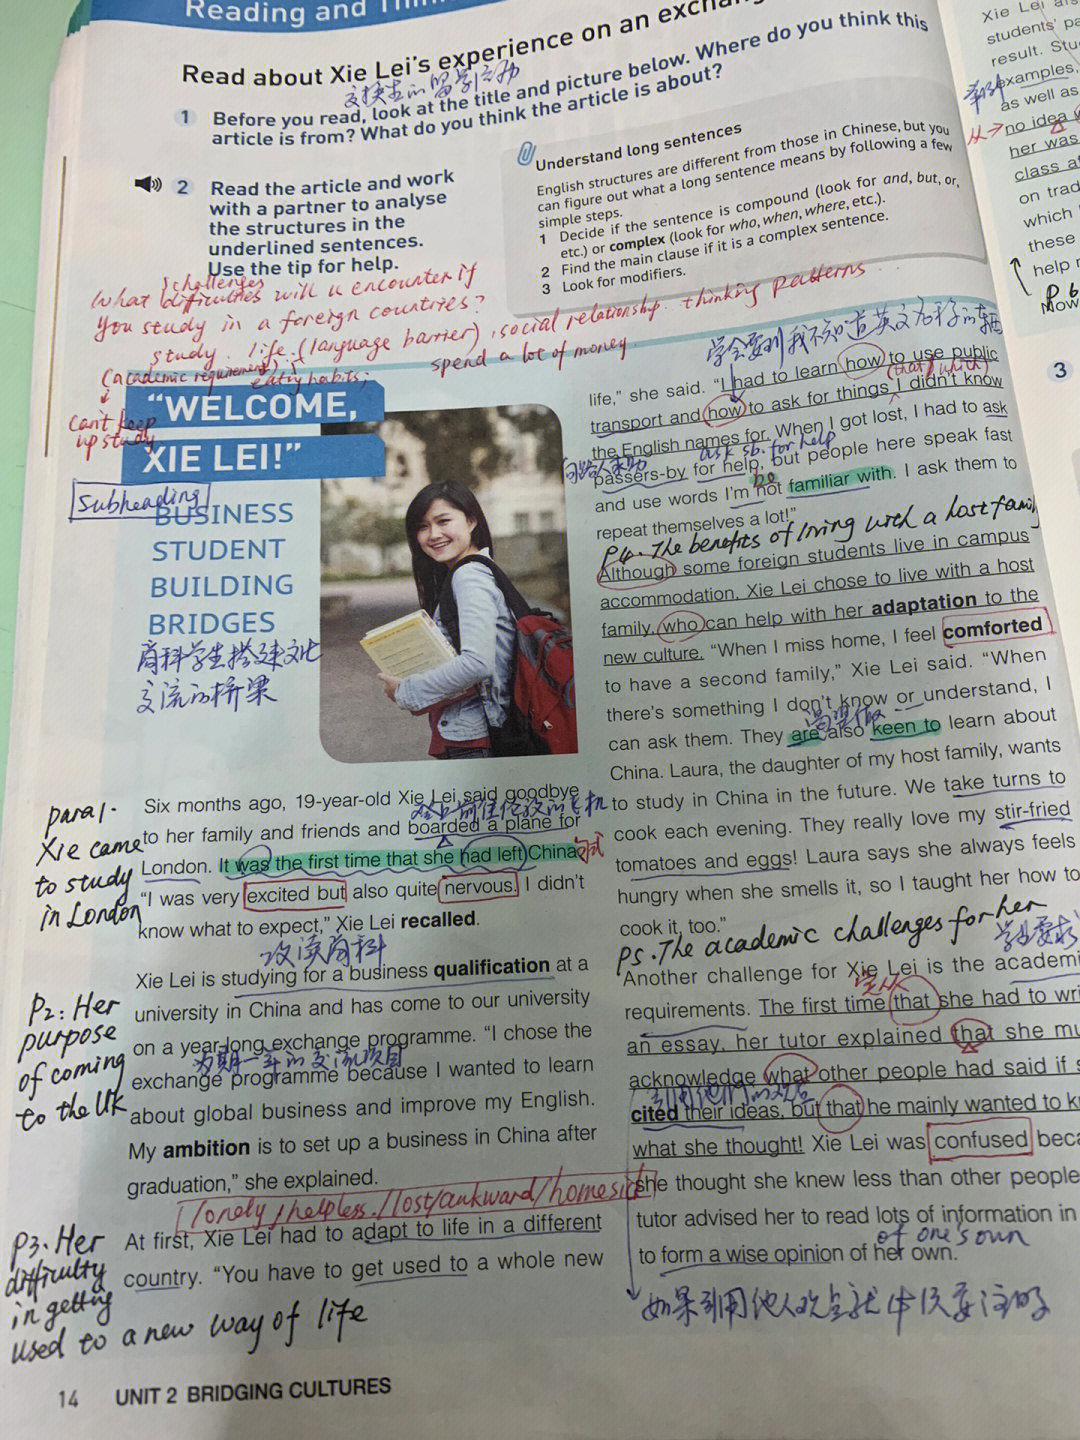 Reading and Thin
Read about Xie Lei's experience on an exchang
交换生的留学活动
1 Before you read, look at the title and picture below. Where do you think this
article is from? What do you think the article is about?
2 Read the article and work
with a partner to analyse
the structures in the
underlined sentences.
Use the tip for help.
Understand long sentences
English structures are different from those in Chinese, but you
can figure out what a long sentence means by following a few
simple steps.
1 Decide if the sentence is compound (look for and, but, or,
etc.) or complex (look for who, when, where, etc.).
2 Find the main clause if it is a complex sentence.
3 Look for modifiers.
challenges
What difficulties will u encounter if
you study in a foreign countries?
study. life. (language barrier), social relationship. thinking patterns
(academic requirement) eating habits; spend a lot of money.
Can't keep
up study
"WELCOME,
XIE LEI!"
Subheading
BUSINESS
STUDENT
BUILDING
BRIDGES
商科学生搭建文化
交流的桥梁
para1.
Xie came
to study
in London
Six months ago, 19-year-old Xie Lei said goodbye
to her family and friends and boarded a plane for
London. It was the first time that she had left China.
"I was very excited but also quite nervous. I didn't
know what to expect," Xie Lei recalled.
攻读商科
P2: Her
purpose
of coming
to the UK
Xie Lei is studying for a business qualification at a
university in China and has come to our university
on a year-long exchange programme. "I chose the
为期一年的交流项目
exchange programme because I wanted to learn
about global business and improve my English.
My ambition is to set up a business in China after
graduation," she explained.
lonely, helpless/lost/aukward/homesick
P3. Her
difficulty
in getting
used to a new way of life
At first, Xie Lei had to adapt to life in a different
country. "You have to get used to a whole new
14 UNIT 2 BRIDGING CULTURES
life," she said. "I had to learn how to use public
(that/which)
transport and how to ask for things I didn't know
the English names for. When I got lost, I had to ask
ask sb. for help
passers-by for help, but people here speak fast
be
and use words I'm not familiar with. I ask them to
repeat themselves a lot!"
P4. The benefits of living with a host family
Although some foreign students live in campus
accommodation, Xie Lei chose to live with a host
family, who can help with her adaptation to the
new culture. "When I miss home, I feel comforted
to have a second family," Xie Lei said. "When
there's something I don't know or understand, I
can ask them. They are also keen to learn about
China. Laura, the daughter of my host family, wants
to study in China in the future. We take turns to
cook each evening. They really love my stir-fried
tomatoes and eggs! Laura says she always feels
hungry when she smells it, so I taught her how to
cook it, too."
P5. The academic challenges for her
学业要求
Another challenge for Xie Lei is the academi
requirements. The first time that she had to wri
an essay, her tutor explained that she mu
acknowledge what other people had said if s
cited their ideas, but that he mainly wanted to k
what she thought! Xie Lei was confused beca
she thought she knew less than other people
tutor advised her to read lots of information in
of one's own
to form a wise opinion of her own.
Xie Lei als
students' pa
result. Stu
examples,
as well as
no idea
her was
class a
on trad
which
these
help
P.6
Now
3